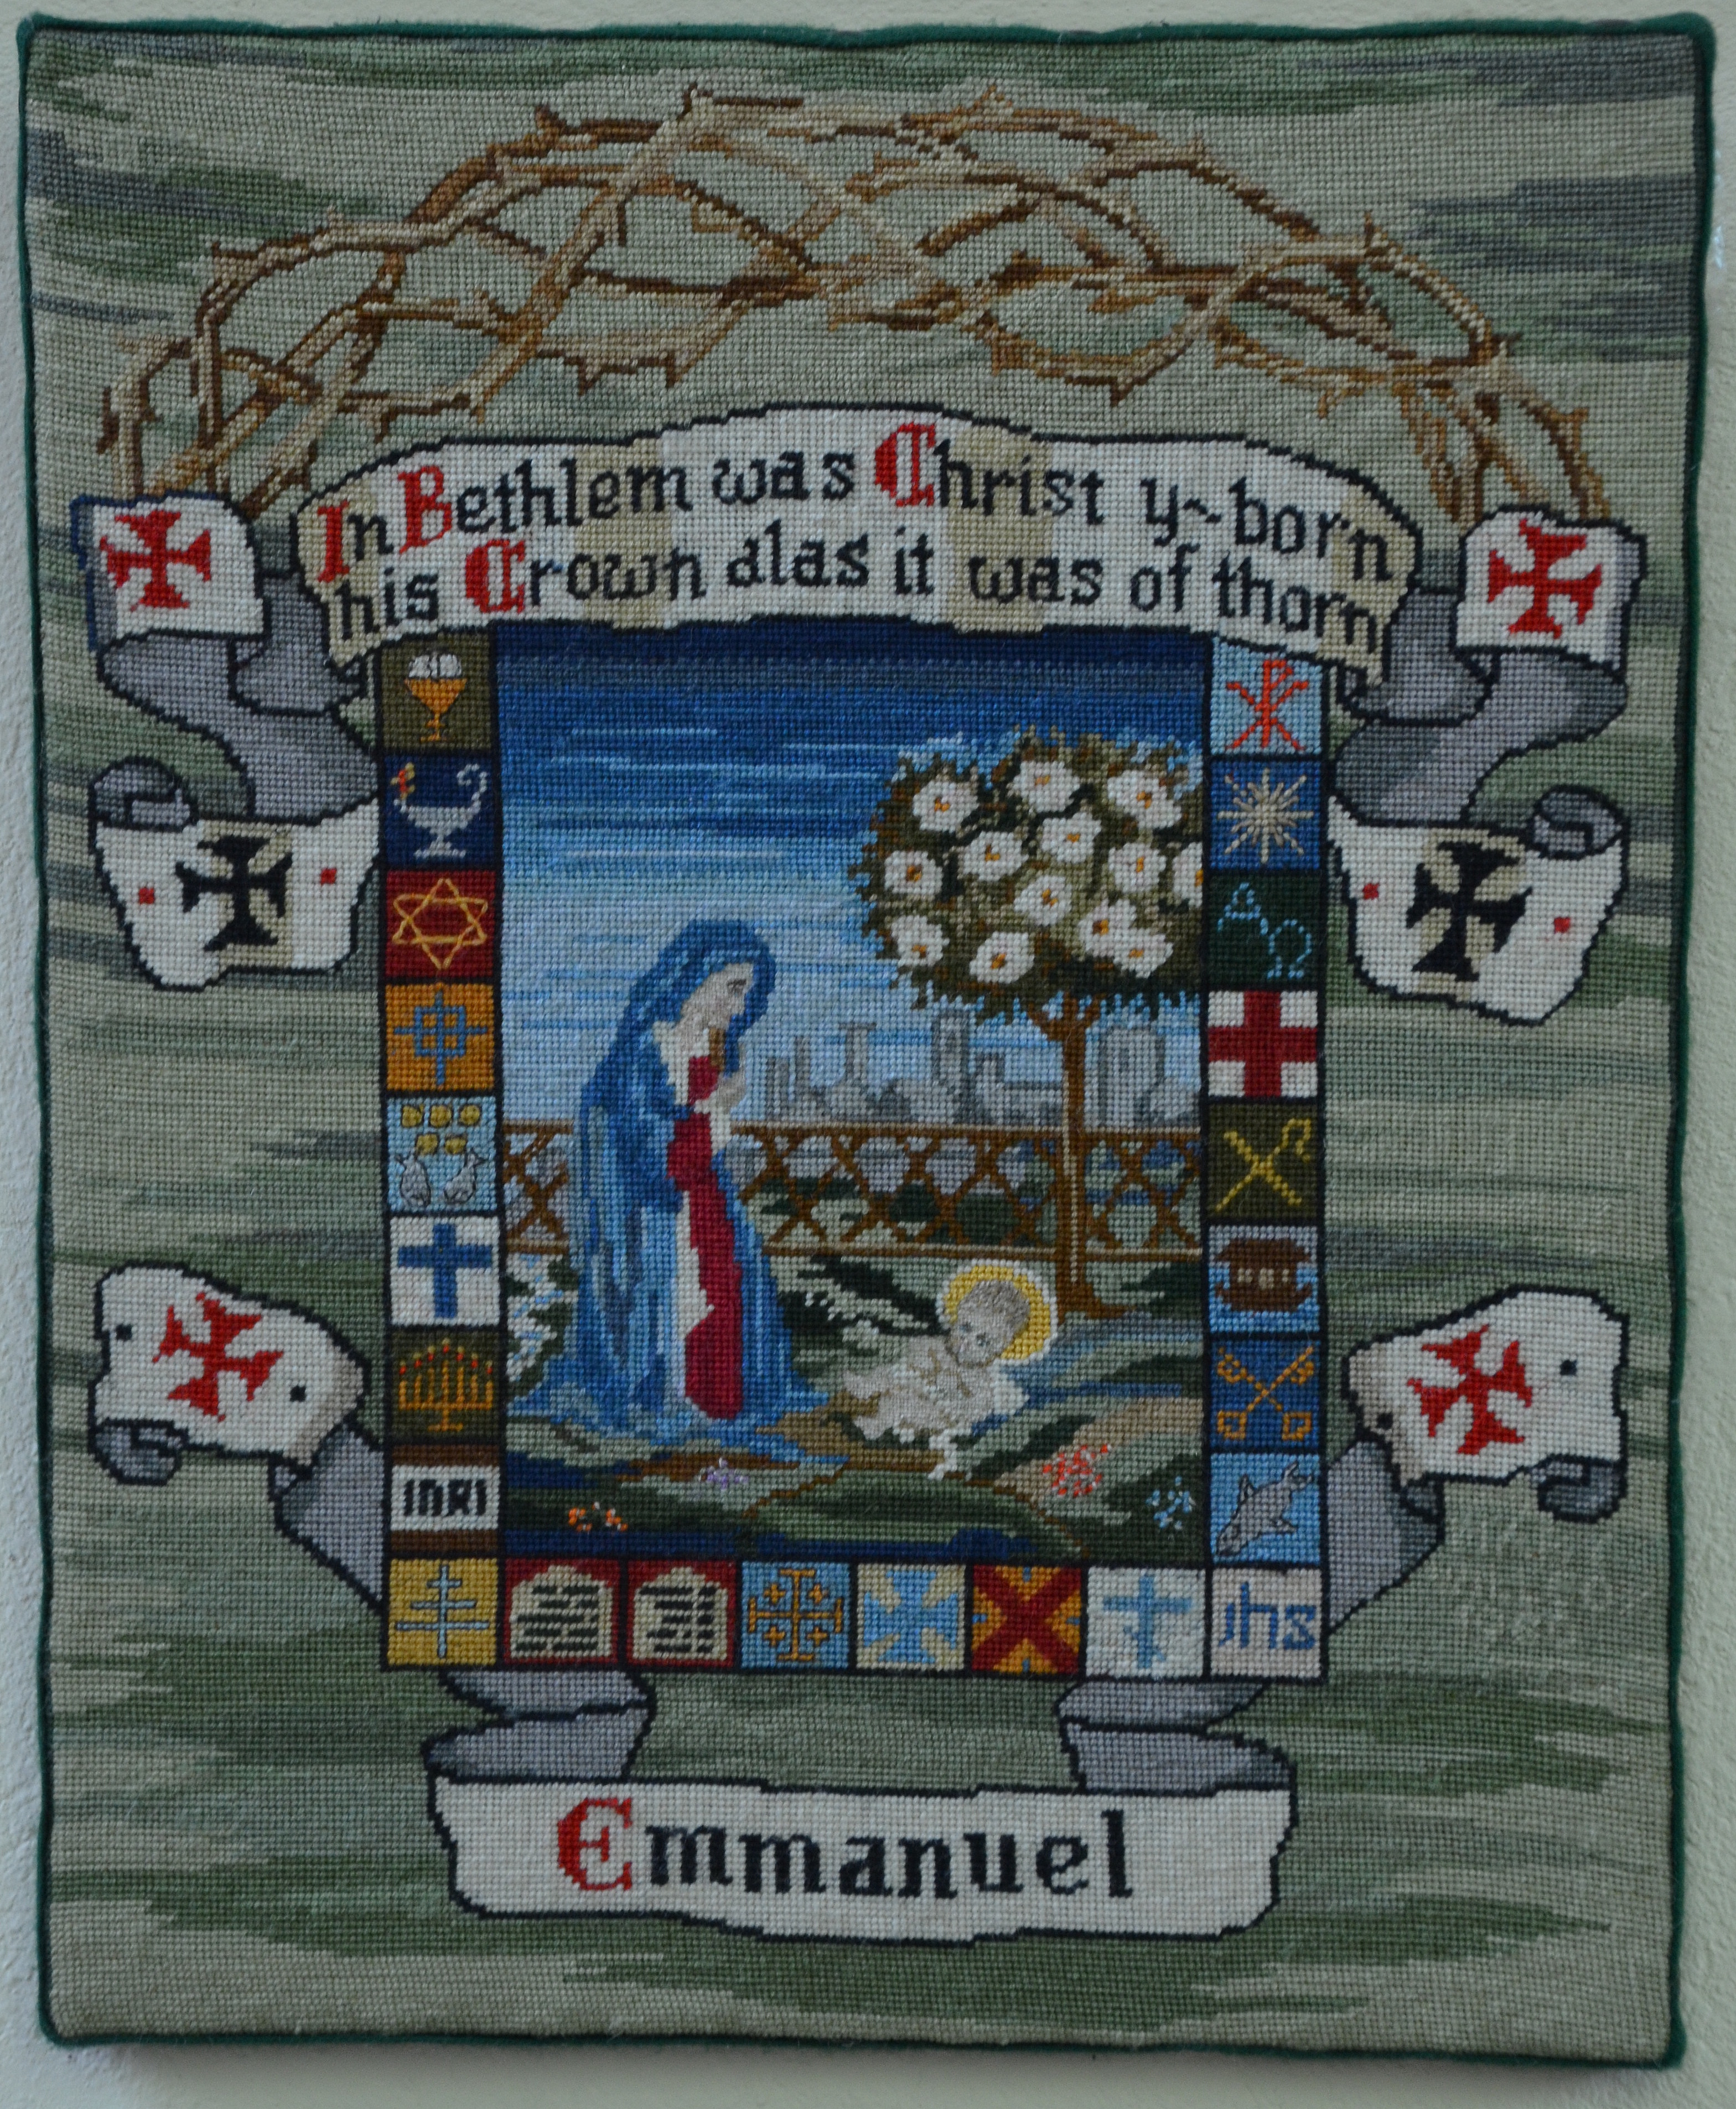 In Bethlem was Christ y-born
his Crown alas it was of thorn
ΑΩ
INRI
jhs
Emmanuel